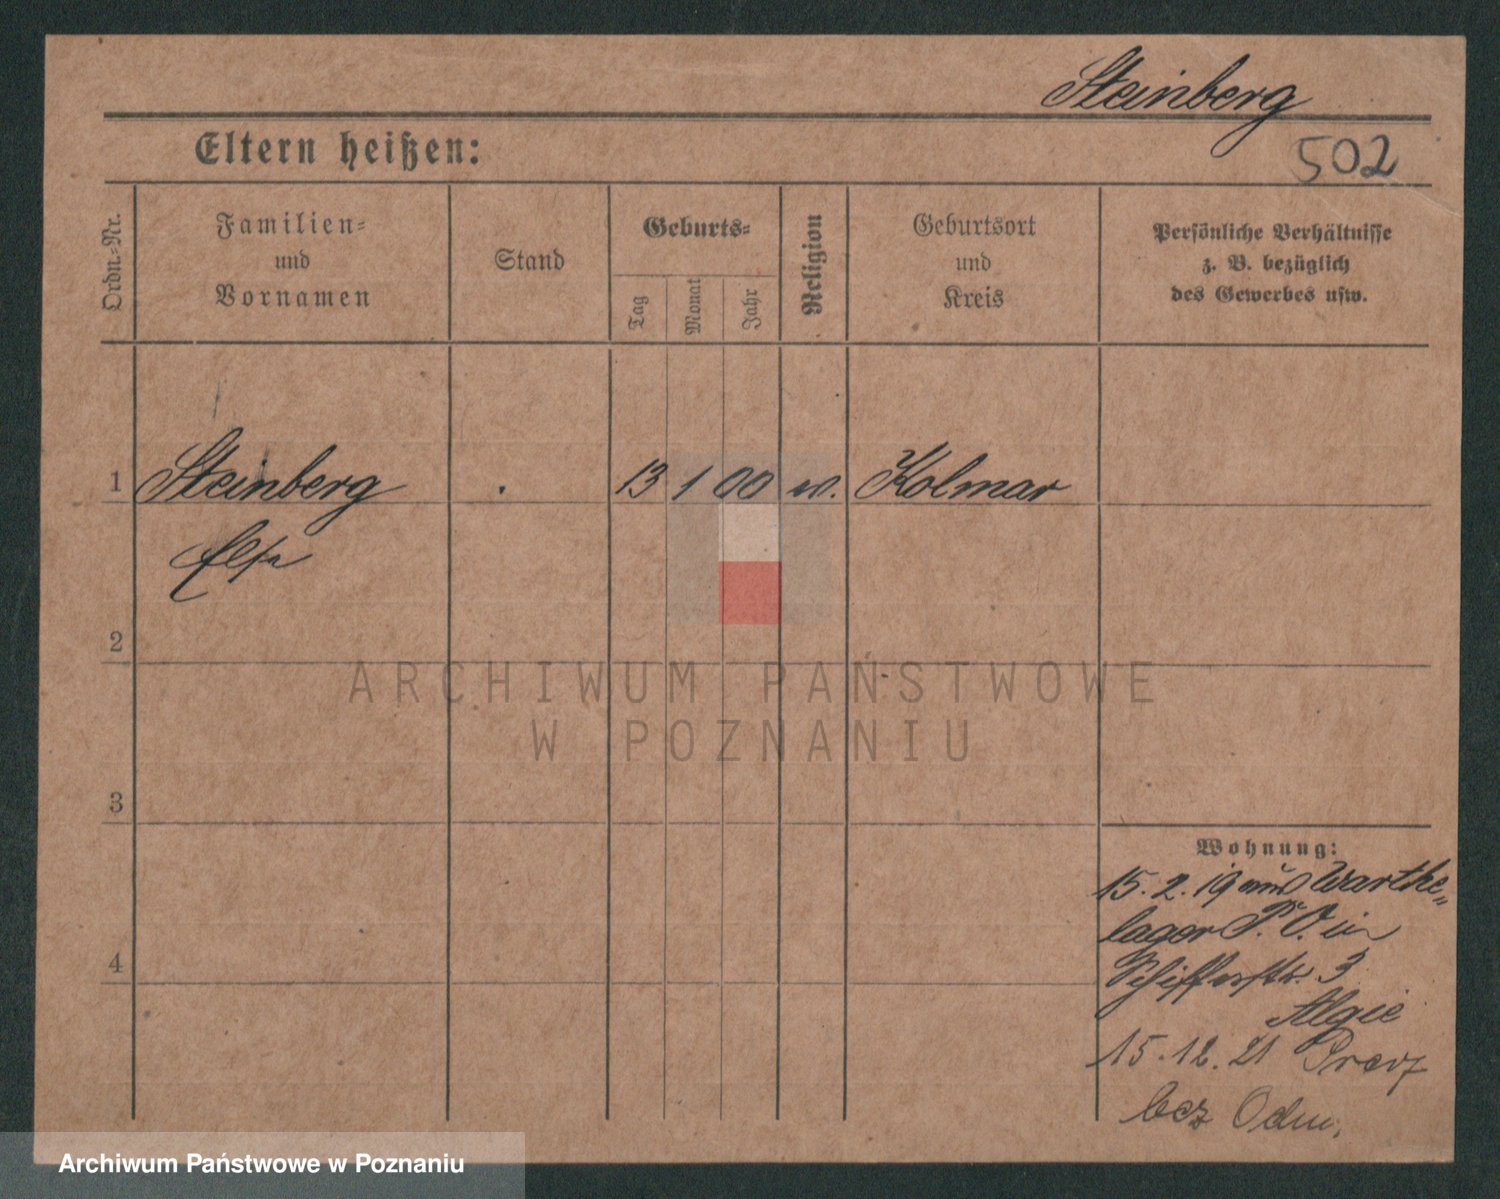 Steinberg
Eltern heißen:
502
Ordn.-Nr.
Familien-
und
Vornamen
Stand
Geburts-
Tag
Monat
Jahr
Religion
Geburtsort
und
Kreis
Persönliche Verhältnisse
z. B. bezüglich
des Gewerbes usw.
1
Steinberg
13 1 00
Kolmar
Else
2
ARCHIWUM PAŃSTWOWE
W POZNANIU
3
Wohnung:
15. 2. 19 aus Warthe-
lager P. O. in
Schifferstr. 3
4
15. 12. 21
bez Odm.
Archiwum Państwowe w Poznaniu